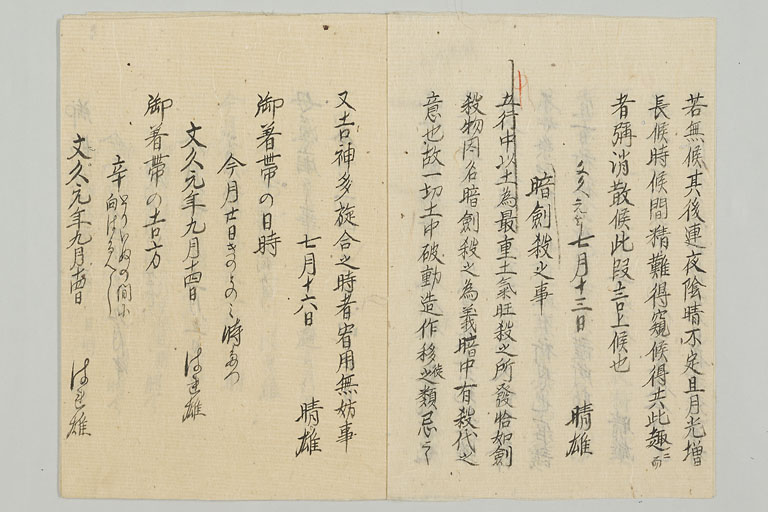 若無候其後連夜陰晴不定且月光増
長候時候間精難得窺候得共此趣ニ而
者弥消散候此段言上候也
文久元年七月十三日　晴雄
暗劍殺之事
五行中以土為最重土氣旺殺之所發恰如劍
殺物因名暗劍殺之為義暗中有殺代之
意也故一切土中破動造作移徙之類忌之
又吉神多旋合之時者宥用無妨事
七月十六日　晴雄
御著帯の日時
今月廿日きのとのミ時
文久元年九月十四日　はれ雄
御著帯の吉方
辛
向はるへし
文久元年九月十四日　はれ雄